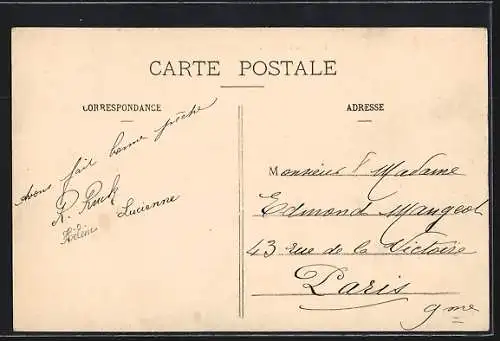 CARTE POSTALE
CORRESPONDANCE
Avons fait bonne pêche
Lucienne
ADRESSE
Monsieur & Madame
Edmond Mangeot
43 rue de la Victoire
Paris
9me